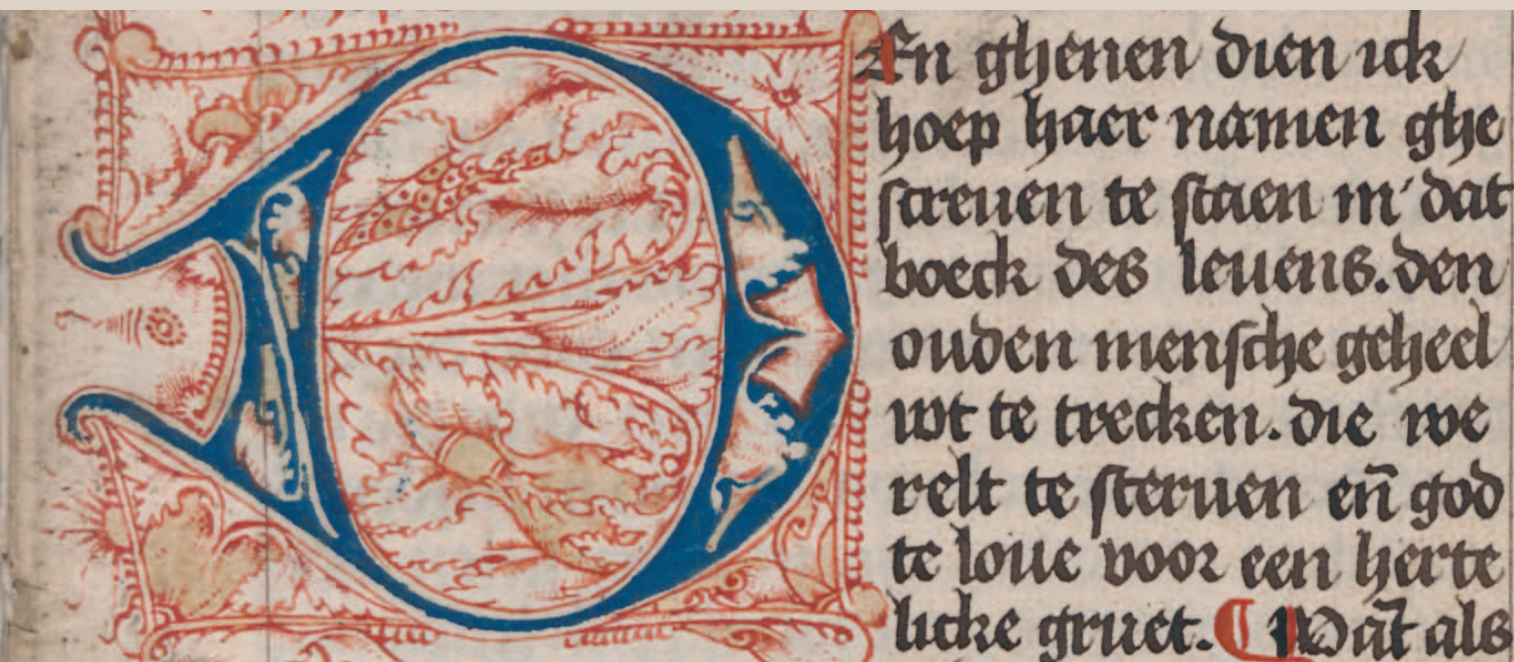 DEn ghenen dien ick
hoep haer namen ghe
screuen te staen in dat
boeck des leuens. den
ouden mensche geheel
wt te trecken. die we
relt te steruen en̄ god
te loue voor een herte
licke gruet. ¶ Wāt als